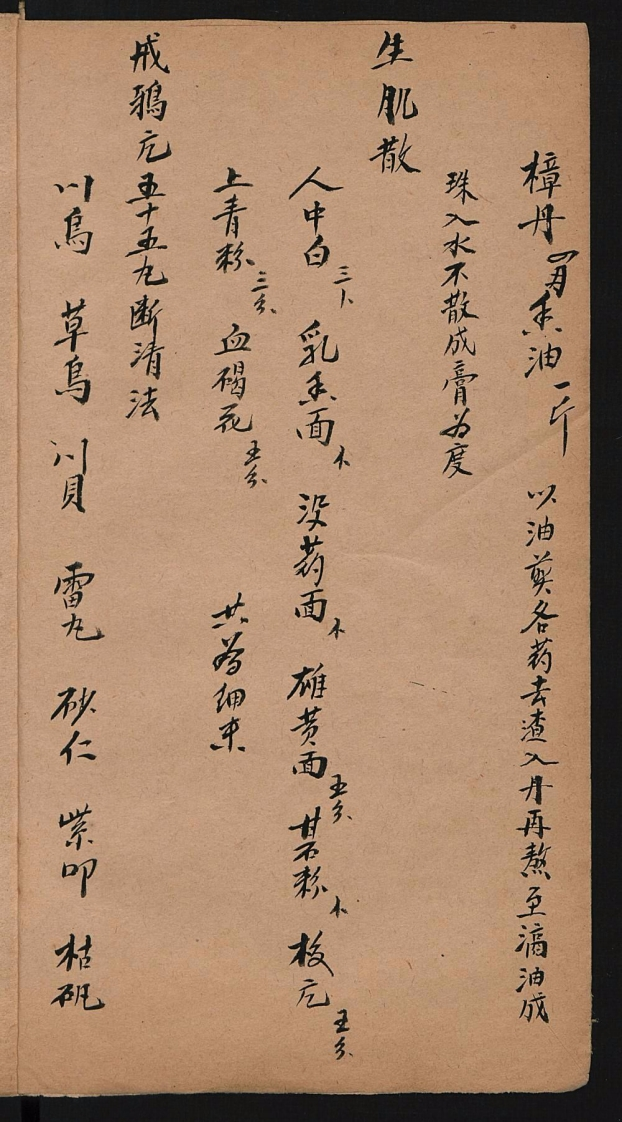 樟丹 四两 香油 一斤 以油煎各药去渣入丹再熬至滴油成
珠入水不散成膏为度
生肌散
人中白 三卜 乳香面 卜 没药面 卜 雄黄面 五分 甘石粉 卜 梅片 五分
上青粉 三分 血竭花 五分 共为细末
戒鸦片五十五丸断清法
川乌 草乌 川贝 雷丸 砂仁 紫叩 枯矾